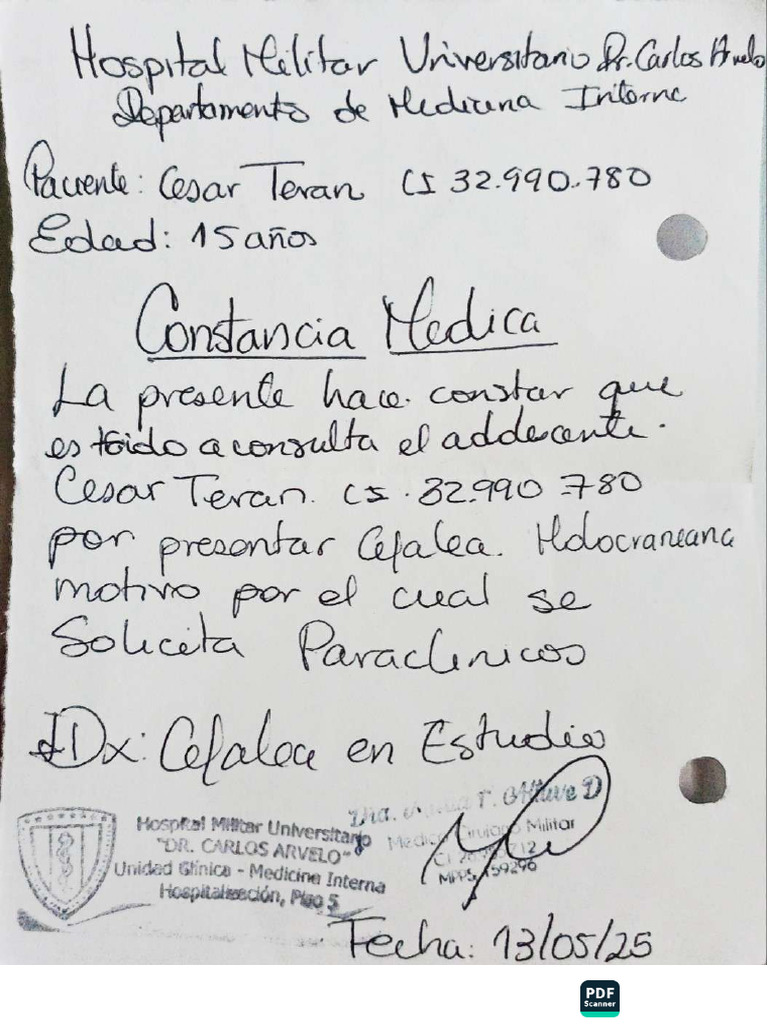 Hospital Militar Universitario Dr. Carlos Arvelo
Departamento de Medicina Interna
Paciente: Cesar Teran CI 32.990.780
Edad: 15 años
Constancia Medica
La presente hace constar que
es traido a consulta el adolecente.
Cesar Teran. CI. 32.990.780
por presentar Cefalea. Holocraneana
motivo por el cual se
Solicita Paraclinicos
IDx: Cefalea en Estudio
Hospital Militar Universitario
"DR. CARLOS ARVELO"
Unidad Clínica - Medicina Interna
Hospitalización, Piso 5
Dra. T. D
Medico Cirujano Militar
MPPS 159296
Fecha: 13/05/25
PDF
Scanner